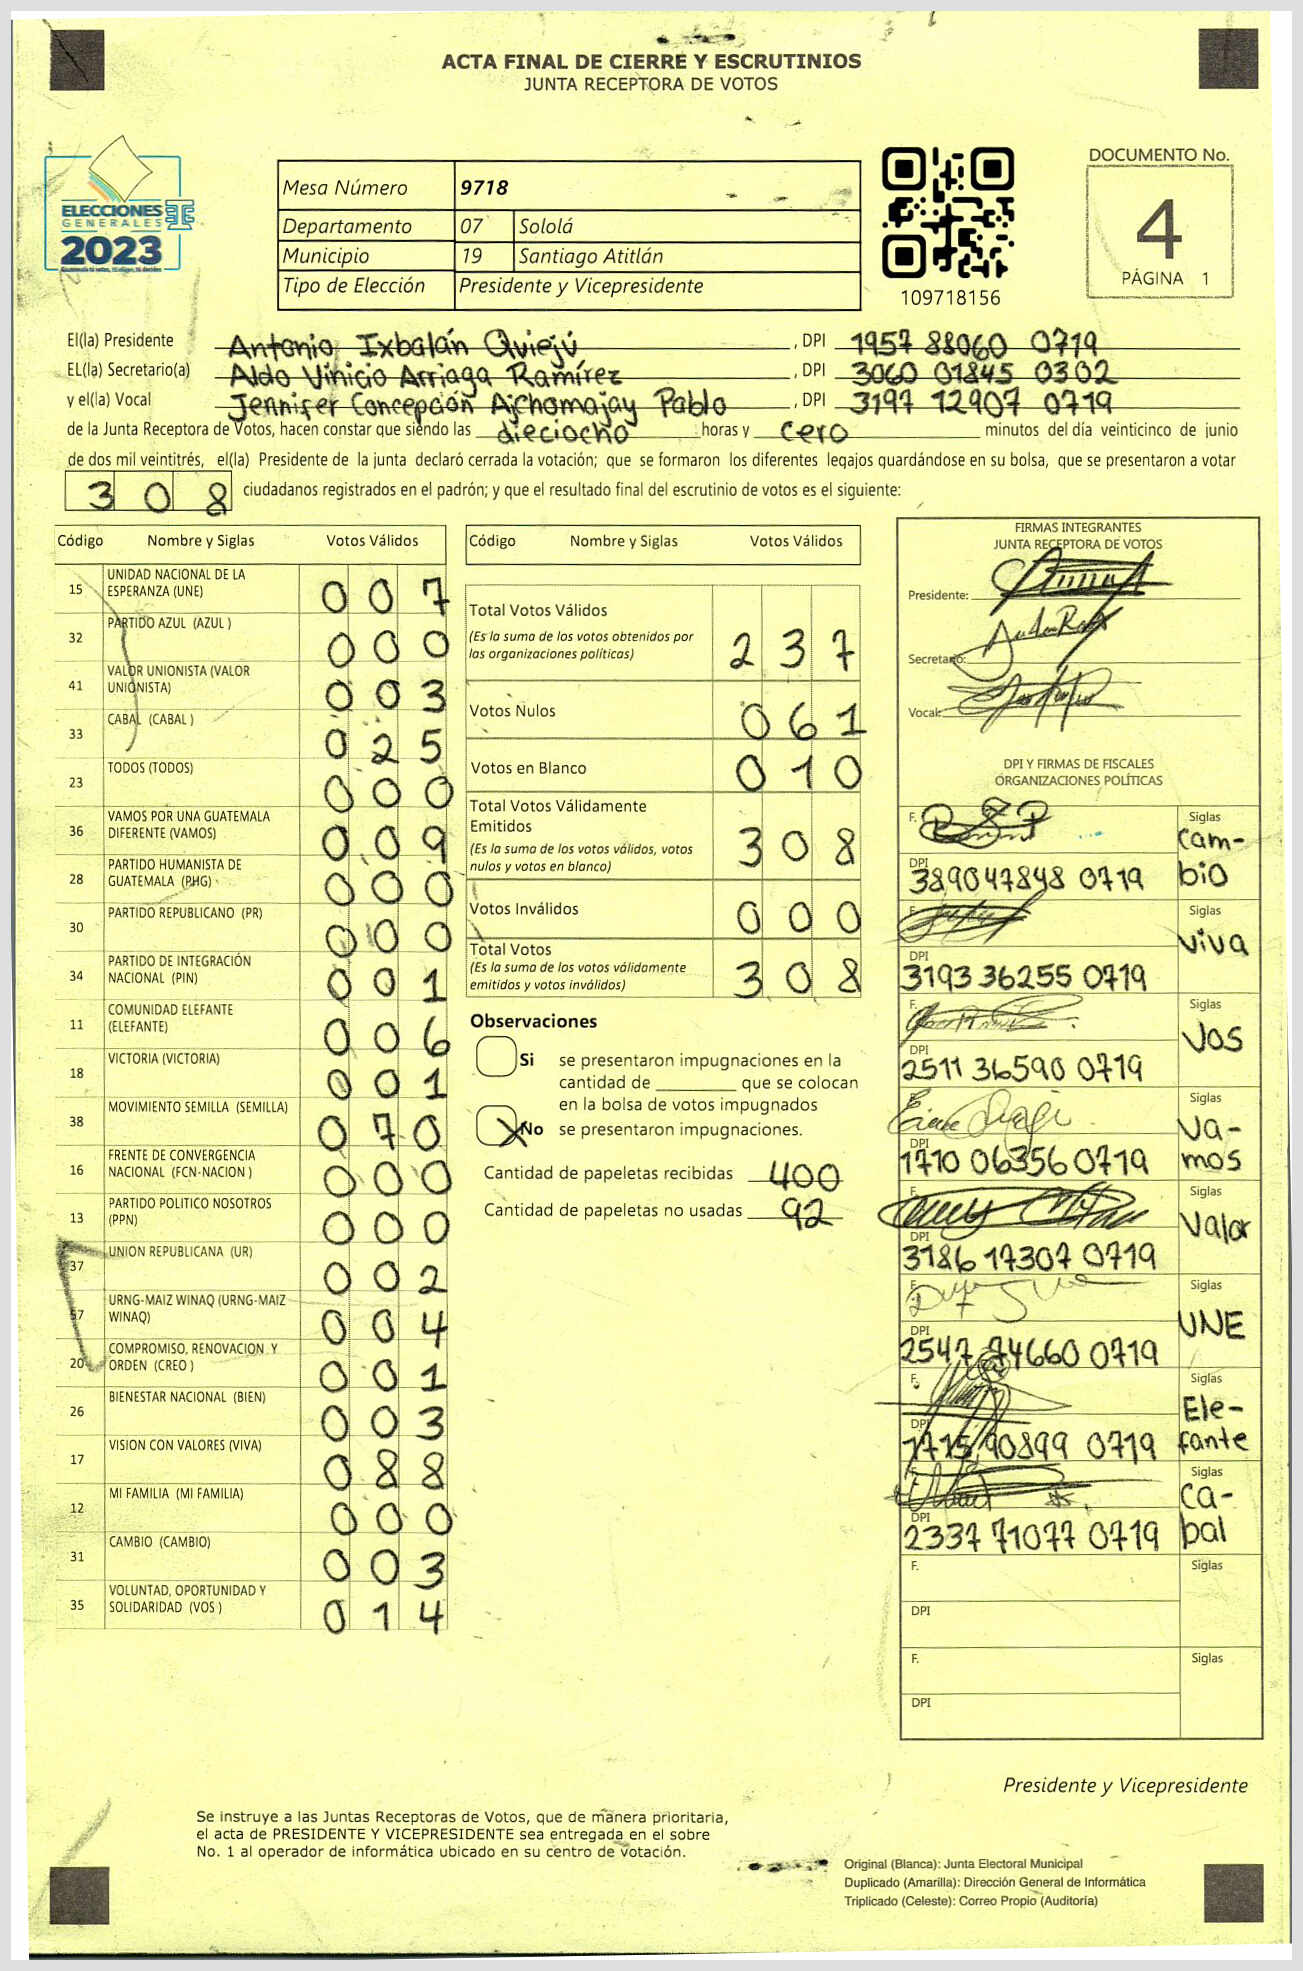 ACTA FINAL DE CIERRE Y ESCRUTINIOS
JUNTA RECEPTORA DE VOTOS
ELECCIONES
GENERALES
2023
Mesa Número 9718
Departamento 07 Sololá
Municipio 19 Santiago Atitlán
Tipo de Elección Presidente y Vicepresidente
109718156
DOCUMENTO No.
4
PÁGINA 1
El(la) Presidente Antonio Ixbalán Quiejú, DPI 1957 88060 0719
EL(la) Secretario(a) Aldo Vinicio Arriaga Ramírez, DPI 3060 01845 0302
y el(la) Vocal Jennifer Concepción Ajchomajay Pablo, DPI 3197 12907 0719
de la Junta Receptora de Votos, hacen constar que siendo las dieciocho horas y cero minutos del día veinticinco de junio
de dos mil veintitrés, el(la) Presidente de la junta declaró cerrada la votación; que se formaron los diferentes legajos guardándose en su bolsa, que se presentaron a votar
308 ciudadanos registrados en el padrón; y que el resultado final del escrutinio de votos es el siguiente:
Código Nombre y Siglas Votos Válidos
15 UNIDAD NACIONAL DE LA ESPERANZA (UNE) 007
32 PARTIDO AZUL (AZUL ) 000
41 VALOR UNIONISTA (VALOR UNIONISTA) 003
33 CABAL (CABAL ) 025
23 TODOS (TODOS) 000
36 VAMOS POR UNA GUATEMALA DIFERENTE (VAMOS) 009
28 PARTIDO HUMANISTA DE GUATEMALA (PHG) 000
30 PARTIDO REPUBLICANO (PR) 000
34 PARTIDO DE INTEGRACIÓN NACIONAL (PIN) 001
11 COMUNIDAD ELEFANTE (ELEFANTE) 006
18 VICTORIA (VICTORIA) 001
38 MOVIMIENTO SEMILLA (SEMILLA) 070
16 FRENTE DE CONVERGENCIA NACIONAL (FCN-NACION ) 000
13 PARTIDO POLITICO NOSOTROS (PPN) 000
37 UNION REPUBLICANA (UR) 002
57 URNG-MAIZ WINAQ (URNG-MAIZ WINAQ) 004
20 COMPROMISO, RENOVACION Y ORDEN (CREO ) 001
26 BIENESTAR NACIONAL (BIEN) 003
17 VISION CON VALORES (VIVA) 088
12 MI FAMILIA (MI FAMILIA) 000
31 CAMBIO (CAMBIO) 003
35 VOLUNTAD, OPORTUNIDAD Y SOLIDARIDAD (VOS ) 014
Código Nombre y Siglas Votos Válidos
Total Votos Válidos 237
(Es la suma de los votos obtenidos por
las organizaciones políticas)
Votos Nulos 061
Votos en Blanco 010
Total Votos Válidamente
Emitidos 308
(Es la suma de los votos válidos, votos
nulos y votos en blanco)
Votos Inválidos 000
Total Votos 308
(Es la suma de los votos válidamente
emitidos y votos inválidos)
Observaciones
Si se presentaron impugnaciones en la
cantidad de ________ que se colocan
en la bolsa de votos impugnados
X No se presentaron impugnaciones.
Cantidad de papeletas recibidas 400
Cantidad de papeletas no usadas 92
FIRMAS INTEGRANTES
JUNTA RECEPTORA DE VOTOS
Presidente:
Secretario:
Vocal:
DPI Y FIRMAS DE FISCALES
ORGANIZACIONES POLÍTICAS
F. Siglas Cam-
DPI 389047848 0719 bio
F. Siglas viva
DPI 3193 36255 0719
F. Siglas VOS
DPI 2511 36590 0719
F. Siglas Va-
DPI 1710 06356 0719 mos
F. Siglas Valor
DPI 3186 17307 0719
F. Siglas UNE
DPI 2547 74660 0719
F. Siglas Ele-
DPI 1715 90899 0719 fante
F. Siglas Ca-
DPI 2337 71077 0719 bal
F. Siglas
DPI
F. Siglas
DPI
Presidente y Vicepresidente
Se instruye a las Juntas Receptoras de Votos, que de manera prioritaria,
el acta de PRESIDENTE Y VICEPRESIDENTE sea entregada en el sobre
No. 1 al operador de informática ubicado en su centro de votación.
Original (Blanca): Junta Electoral Municipal
Duplicado (Amarilla): Dirección General de Informática
Triplicado (Celeste): Correo Propio (Auditoría)